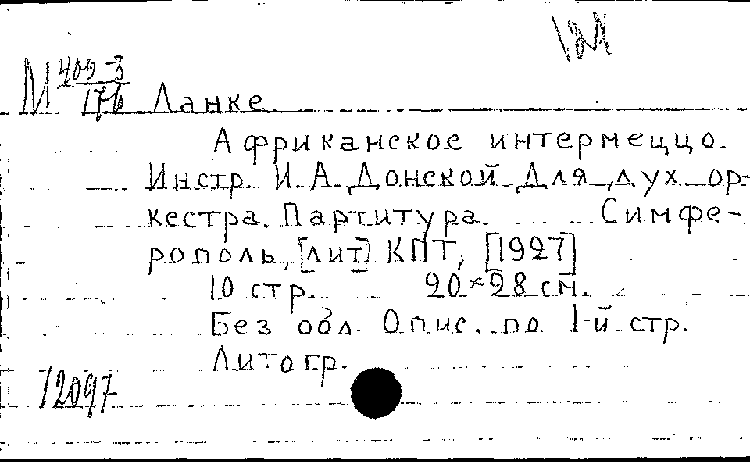 М 409-3
176 Ланке.
Африканское интермеццо.
Инстр. И.А. Донской. Для дух. ор-
кестра. Партитура. Симфе-
рополь, [лит] КПТ, [1927]
10 стр. 20×28 см.
Без обл. Опис. по 1-й стр.
Литогр.
12097